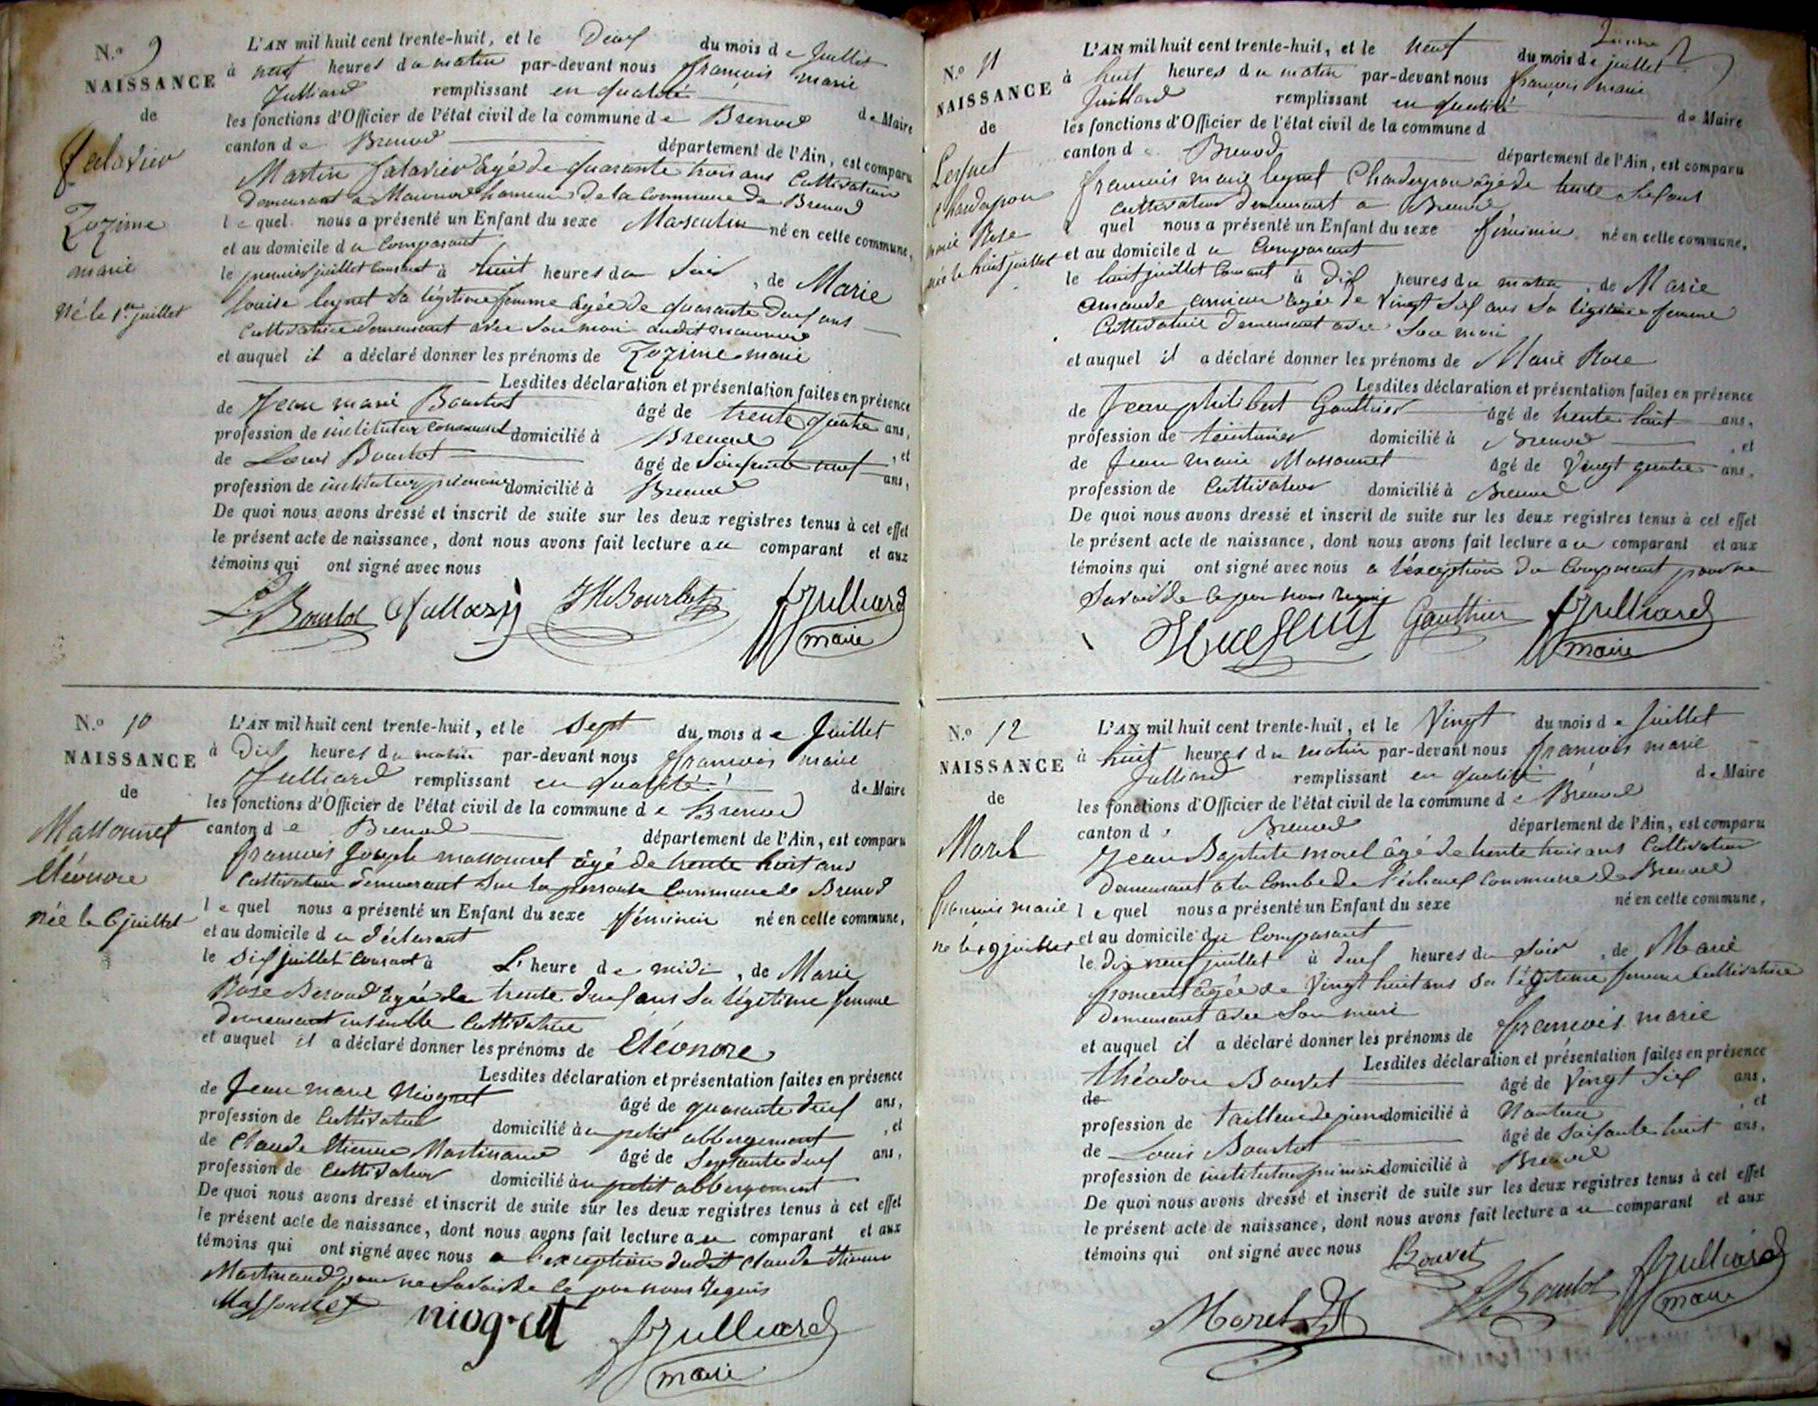 N.º 9
NAISSANCE
de
Jalavier
Zozime
marie
né le 1er juillet
L'AN mil huit cent trente-huit, et le Deux du mois de Juillet
à neuf heures du matin par-devant nous françois marie
Julliard remplissant en qualité
les fonctions d'Officier de l'état civil de la commune de Brenod de Maire
canton de Brenod département de l'Ain, est comparu
Martin Jalavier âgé de quarante trois ans Cultivateur
demeurant à de la Commune de Brenod
lequel nous a présenté un Enfant du sexe Masculin né en cette commune,
et au domicile du Comparant
le premier juillet Courant à huit heures du Soir, de Marie
louise leynet sa légitime femme âgée de quarante Deux ans
Cultivatrice demeurant avec Son mari
et auquel il a déclaré donner les prénoms de Zozime marie
Lesdites déclaration et présentation faites en présence
de Jean marie Bourbot âgé de trente quatre ans,
profession de instituteur communal domicilié à Brenod, et
de Louis Bourbot âgé de Soixante neuf ans,
profession de instituteur primaire domicilié à Brenod
De quoi nous avons dressé et inscrit de suite sur les deux registres tenus à cet effet
le présent acte de naissance, dont nous avons fait lecture au comparant et aux
témoins qui ont signé avec nous
L. Bourbot JM Bourbot fJulliard
maire
N.º 10
NAISSANCE
de
Massonnet
Eléonore
née le 6 juillet
L'AN mil huit cent trente-huit, et le Sept du mois de Juillet
à Dix heures du matin par-devant nous françois marie
Julliard remplissant en qualité
les fonctions d'Officier de l'état civil de la commune de Brenod de Maire
canton de Brenod département de l'Ain, est comparu
françois Joseph massonnet âgé de trente huit ans
Cultivateur Demeurant Sur la Commune de Brenod
lequel nous a présenté un Enfant du sexe féminin né en cette commune,
et au domicile du Déclarant
le Six juillet Courant à L'heure de midi, de Marie
Rose Beroud âgée de trente Deux ans Sa légitime femme
Demeurant ensemble Cultivatrice
et auquel il a déclaré donner les prénoms de Eléonore
Lesdites déclaration et présentation faites en présence
de Jean marie Niogret âgé de quarante Deux ans,
profession de Cultivateur domicilié à petit abbergement, et
de Claude Etienne Martinand âgé de Septante Deux ans,
profession de Cultivateur domicilié au petit abbergement
De quoi nous avons dressé et inscrit de suite sur les deux registres tenus à cet effet
le présent acte de naissance, dont nous avons fait lecture au comparant et aux
témoins qui ont signé avec nous a l'exception dudit Claude Etienne
Martinand pour ne Savoir de ce par nous requis
Massonnet niogret fJulliard
maire
N.º 11
NAISSANCE
de
Leynet
Chardeyron
marie Rose
née le huit juillet
L'AN mil huit cent trente-huit, et le neuf du mois de juillet
à huit heures du matin par-devant nous françois marie
Julliard remplissant en qualité
les fonctions d'Officier de l'état civil de la commune d de Maire
canton de Brenod département de l'Ain, est comparu
françois marie leynet Chardeyron âgé de trente Six ans
Cultivateur demeurant a Brenod
quel nous a présenté un Enfant du sexe féminin né en cette commune,
et au domicile du Comparant
le huit juillet Courant à Dix heures du matin, de Marie
amande âgée de Vingt Six ans Sa légitime femme
Cultivatrice Demeurant avec Son mari
et auquel il a déclaré donner les prénoms de Marie Rose
Lesdites déclaration et présentation faites en présence
de Jean philibert Gauthier âgé de trente huit ans,
profession de teinturier domicilié à Brenod, et
de Jean marie Massonnet âgé de Vingt quatre ans,
profession de Cultivateur domicilié à Brenod
De quoi nous avons dressé et inscrit de suite sur les deux registres tenus à cet effet
le présent acte de naissance, dont nous avons fait lecture au comparant et aux
témoins qui ont signé avec nous a l'exception du Comparant pour ne
Savoir de ce par nous requis
Gauthier fJulliard
maire
N.º 12
NAISSANCE
de
Morel
françois marie
né le 19 juillet
L'AN mil huit cent trente-huit, et le Vingt du mois de Juillet
à huit heures du matin par-devant nous françois marie
Julliard remplissant en qualité de Maire
les fonctions d'Officier de l'état civil de la commune de Brenod
canton d Brenod département de l'Ain, est comparu
Jean Baptiste morel âgé de trente trois ans Cultivateur
demeurant a la Combe de Commune de Brenod
lequel nous a présenté un Enfant du sexe né en cette commune,
et au domicile du Comparant
le dix neuf juillet à Deux heures du Soir, de Marie
froment âgée de Vingt huit ans Sa légitime femme Cultivatrice
demeurant avec Son mari
et auquel il a déclaré donner les prénoms de françois marie
Lesdites déclaration et présentation faites en présence
de théodore Bouvet âgé de Vingt Six ans,
profession de tailleur de pierre domicilié à Nantua, et
de Louis Bourbot âgé de Soixante huit ans,
profession de instituteur primaire domicilié à Brenod
De quoi nous avons dressé et inscrit de suite sur les deux registres tenus à cet effet
le présent acte de naissance, dont nous avons fait lecture au comparant et aux
témoins qui ont signé avec nous Bouvet
Morel L. Bourbot fJulliard
maire